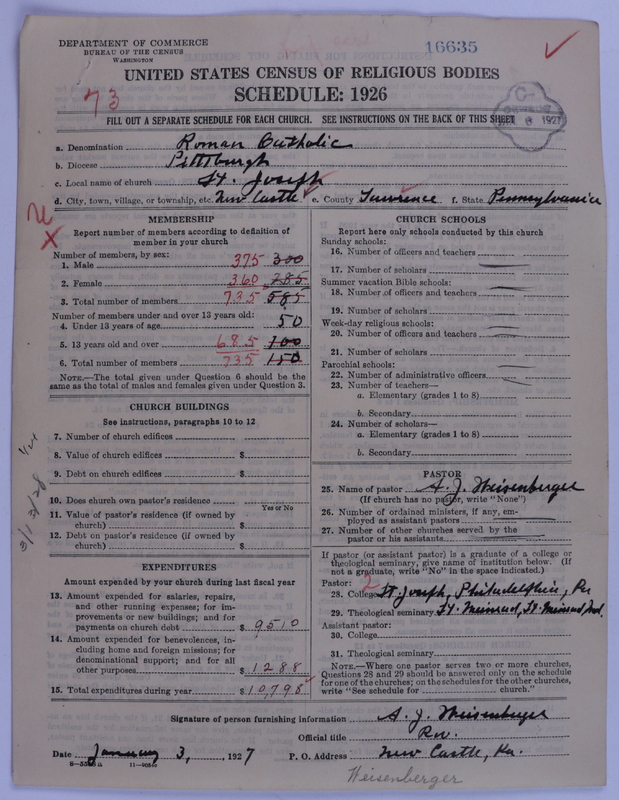 DEPARTMENT OF COMMERCE
BUREAU OF THE CENSUS
WASHINGTON
16635
UNITED STATES CENSUS OF RELIGIOUS BODIES
SCHEDULE: 1926
73
FILL OUT A SEPARATE SCHEDULE FOR EACH CHURCH. SEE INSTRUCTIONS ON THE BACK OF THIS SHEET
a. Denomination Roman Catholic
b. Diocese Pittsburgh
c. Local name of church St. Joseph
d. City, town, village, or township, etc. New Castle e. County Lawrence f. State Pennsylvania
MEMBERSHIP
Report number of members according to definition of
member in your church
Number of members, by sex:
1. Male 375 300
2. Female 360 285
3. Total number of members 735 585
Number of members under and over 13 years old:
4. Under 13 years of age 50
5. 13 years old and over 685 100
6. Total number of members 735 150
NOTE.—The total given under Question 6 should be the
same as the total of males and females given under Question 3.
CHURCH BUILDINGS
See instructions, paragraphs 10 to 12
7. Number of church edifices
8. Value of church edifices $
9. Debt on church edifices $
10. Does church own pastor's residence
Yes or No
11. Value of pastor's residence (if owned by
church) $
12. Debt on pastor's residence (if owned by
church) $
EXPENDITURES
Amount expended by your church during last fiscal year
13. Amount expended for salaries, repairs,
and other running expenses; for im-
provements or new buildings; and for
payments on church debt $ 9510
14. Amount expended for benevolences, in-
cluding home and foreign missions; for
denominational support; and for all
other purposes $ 1288
15. Total expenditures during year $ 10,798
CHURCH SCHOOLS
Report here only schools conducted by this church
Sunday schools:
16. Number of officers and teachers
17. Number of scholars
Summer vacation Bible schools:
18. Number of officers and teachers
19. Number of scholars
Week-day religious schools:
20. Number of officers and teachers
21. Number of scholars
Parochial schools:
22. Number of administrative officers
23. Number of teachers—
a. Elementary (grades 1 to 8)
b. Secondary
24. Number of scholars—
a. Elementary (grades 1 to 8)
b. Secondary
PASTOR
25. Name of pastor A. J. Weisenberger
(If church has no pastor, write "None")
26. Number of ordained ministers, if any, em-
ployed as assistant pastors
27. Number of other churches served by the
pastor or his assistants
If pastor (or assistant pastor) is a graduate of a college or
theological seminary, give name of institution below. (If
not a graduate, write "No" in the space indicated.)
Pastor: 2
28. College St. Joseph, Philadelphia, Pa
29. Theological seminary St. Meinrad, St. Meinrad Ind.
Assistant pastor:
30. College
31. Theological seminary
NOTE.—Where one pastor serves two or more churches,
Questions 28 and 29 should be answered only on the schedule
for one of the churches; on the schedules for the other churches,
write "See schedule for church."
Signature of person furnishing information A. J. Weisenberger
Official title Rev.
Date January 3, 1927 P. O. Address New Castle, Pa.
Weisenberger